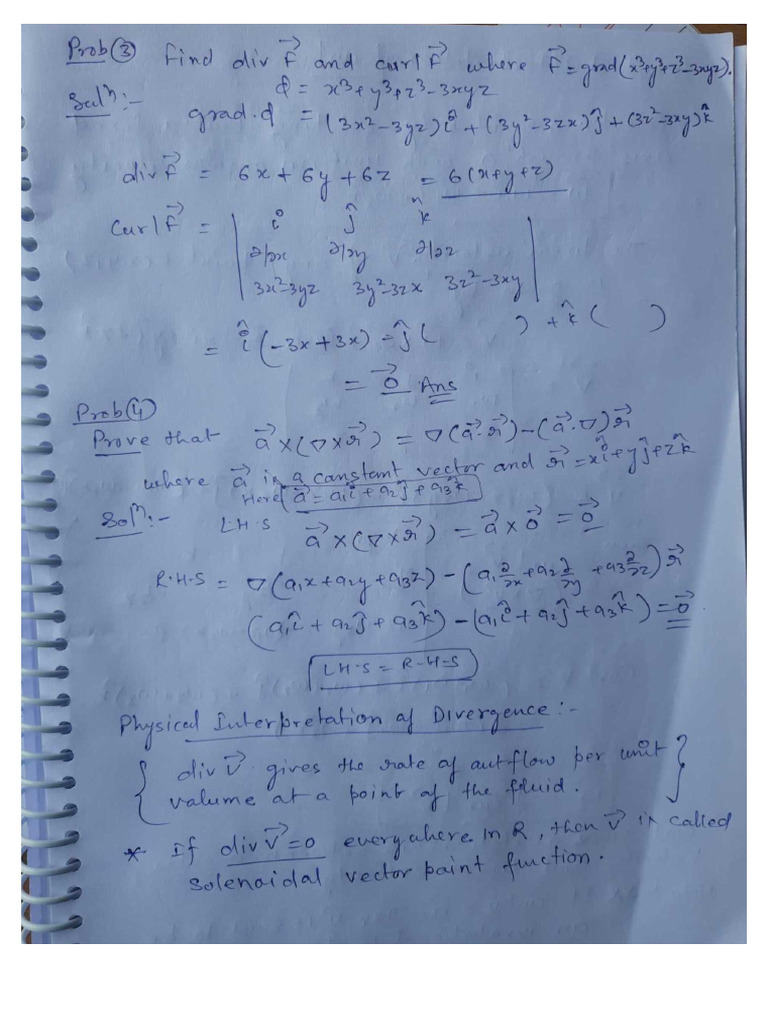 Prob(3) Find div F⃗ and curl F⃗ where F⃗ = grad(x³+y³+z³-3xyz).
Sol^n :- ϕ = x³+y³+z³-3xyz
grad.ϕ = (3x²-3yz)î + (3y²-3zx)ĵ + (3z²-3xy)k̂
div F⃗ = 6x + 6y + 6z = 6(x+y+z)
Curl F⃗ = | î ĵ k̂ |
| ∂/∂x ∂/∂y ∂/∂z |
| 3x²-3yz 3y²-3zx 3z²-3xy |
= î (-3x+3x) - ĵ ( ) + k̂ ( )
= 0⃗ Ans
Prob(4)
Prove that a⃗ × (∇×r⃗) = ∇(a⃗.r⃗) - (a⃗.∇)r⃗
where a⃗ is a constant vector and r⃗ = xî+yĵ+zk̂
Here a⃗ = a₁î + a₂ĵ + a₃k̂
Sol^n :- L.H.S a⃗ × (∇×r⃗) = a⃗ × 0⃗ = 0⃗
R.H.S = ∇(a₁x + a₂y + a₃z) - (a₁ ∂/∂x + a₂ ∂/∂y + a₃ ∂/∂z) r⃗
(a₁î + a₂ĵ + a₃k̂) - (a₁î + a₂ĵ + a₃k̂) = 0⃗.
L.H.S = R.H.S
Physical Interpretation of Divergence :-
{ div v⃗ gives the rate of outflow per unit
volume at a point of the fluid. }
* If div v⃗ = 0 everywhere in R, then v⃗ is called
solenoidal vector point function.